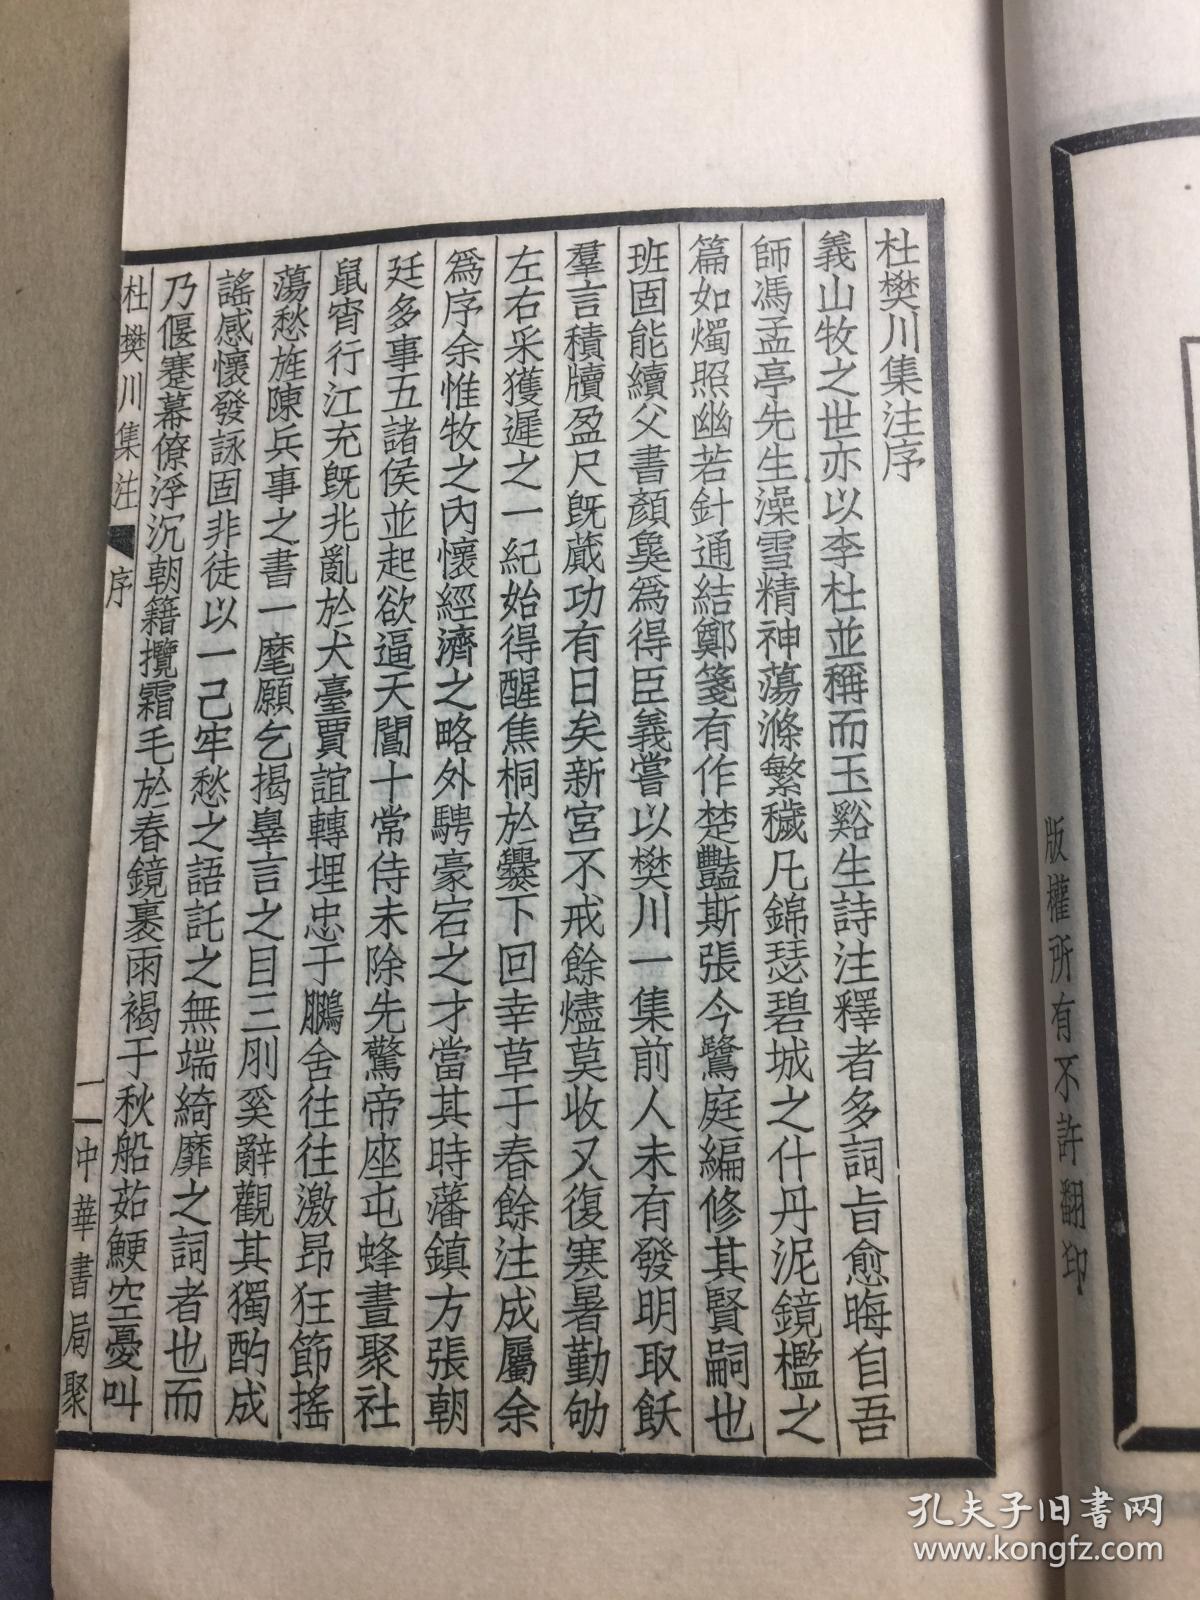 版權所有不許翻印
杜樊川集注序
義山牧之世亦以李杜並稱而玉谿生詩注釋者多詞旨愈晦自吾
師馮孟亭先生澡雪精神蕩滌繁穢凡錦瑟碧城之什丹泥鏡檻之
篇如燭照幽若針通結鄭箋有作楚豔斯張今鷺庭編修其賢嗣也
班固能續父書顏奐爲得臣義嘗以樊川一集前人未有發明取飫
羣言積牘盈尺既蕆功有日矣新宮不戒餘燼莫收又復寒暑勤劬
左右采獲遲之一紀始得醒焦桐於爨下回幸草于春餘注成屬余
爲序余惟牧之內懷經濟之略外騁豪宕之才當其時藩鎮方張朝
廷多事五諸侯並起欲逼天閽十常侍未除先驚帝座屯蜂晝聚社
鼠宵行江充既兆亂於犬臺賈誼轉埋忠于鵩舍往往激昂狂節搖
蕩愁旌陳兵事之書一麾願乞揭辠言之目三刖奚辭觀其獨酌成
謠感懷發詠固非徒以一己牢愁之語託之無端綺靡之詞者也而
乃偃蹇幕僚浮沉朝籍攬霜毛於春鏡裹雨褐于秋船茹鯁空憂叫
杜樊川集注 序 一 中華書局聚
孔夫子旧书网
www.kongfz.com